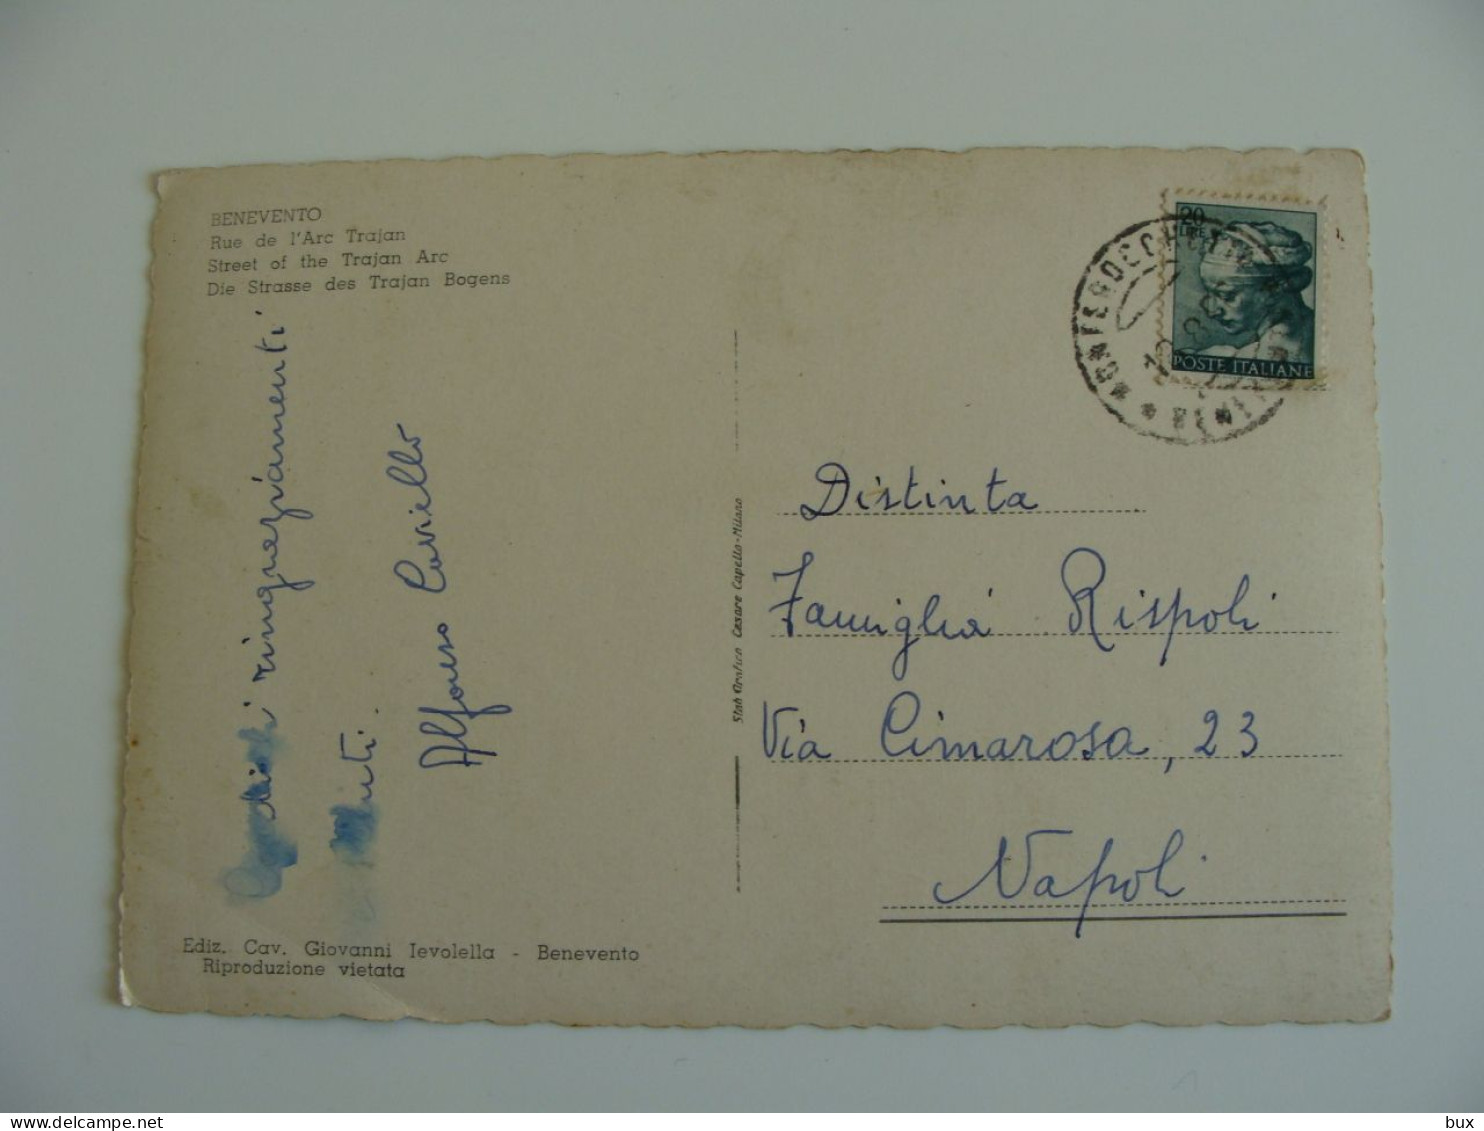 BENEVENTO
Rue de l'Arc Trajan
Street of the Trajan Arc
Die Strasse des Trajan Bogens
ringraziamenti
Alfonso Coviello
Ediz. Cav. Giovanni Ievolella - Benevento
Riproduzione vietata
Stab Grafico Cesare Capello-Milano
20
LIRE
POSTE ITALIANE
Distinta
Famiglia Rispoli
Via Cimarosa, 23
Napoli
bux